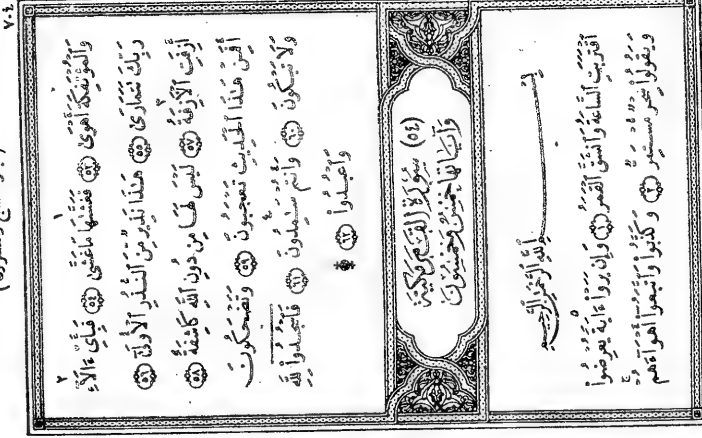 ٧٠٤
وَالْمُؤْتَفِكَةَ أَهْوَىٰ ﴿٥٣﴾ فَغَشَّىٰهَا مَا غَشَّىٰ ﴿٥٤﴾ فَبِأَيِّ ءَالَآءِ
رَبِّكَ تَتَمَارَىٰ ﴿٥٥﴾ هَٰذَا نَذِيرٌ مِّنَ ٱلنُّذُرِ ٱلْأُولَىٰٓ ﴿٥٦﴾
أَزِفَتِ ٱلْأَزِفَةُ ﴿٥٧﴾ لَيْسَ لَهَا مِن دُونِ ٱللَّهِ كَاشِفَةٌ ﴿٥٨﴾
أَفَمِنْ هَٰذَا ٱلْحَدِيثِ تَعْجَبُونَ ﴿٥٩﴾ وَتَضْحَكُونَ
وَلَا تَبْكُونَ ﴿٦٠﴾ وَأَنتُمْ سَٰمِدُونَ ﴿٦١﴾ فَٱسْجُدُوا۟ لِلَّهِ
وَٱعْبُدُوا۟ ﴿٦٢﴾
(٥٤) سُورَةُ الْقَمَرِ مَكِّيَّةٌ
وَآيَاتُهَا خَمْسٌ وَخَمْسُونَ
بِسْمِ ٱللَّهِ ٱلرَّحْمَٰنِ ٱلرَّحِيمِ
ٱقْتَرَبَتِ ٱلسَّاعَةُ وَٱنشَقَّ ٱلْقَمَرُ ﴿١﴾ وَإِن يَرَوْا۟ ءَايَةً يُعْرِضُوا۟
وَيَقُولُوا۟ سِحْرٌ مُّسْتَمِرٌّ ﴿٢﴾ وَكَذَّبُوا۟ وَٱتَّبَعُوٓا۟ أَهْوَآءَهُمْ